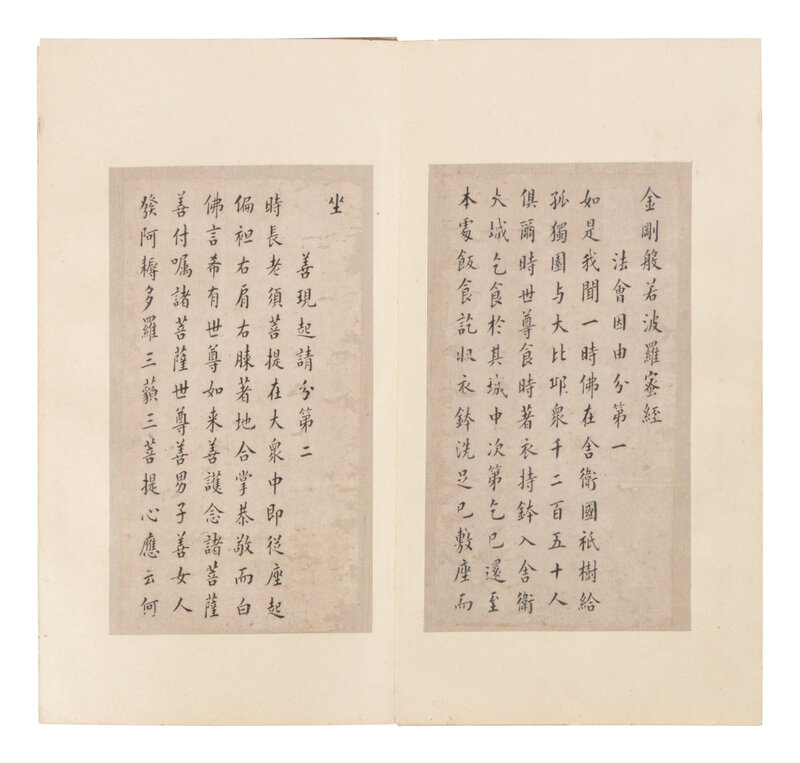 金剛般若波羅蜜經
法會因由分第一
如是我聞一時佛在舍衛國祇樹給
孤獨園与大比邱衆千二百五十人
俱爾時世尊食時著衣持鉢入舍衛
大城乞食於其城中次第乞已還至
本處飯食訖收衣鉢洗足已敷座而
坐
善現起請分第二
時長老須菩提在大衆中即從座起
偏袒右肩右膝著地合掌恭敬而白
佛言希有世尊如来善護念諸菩薩
善付嘱諸菩薩世尊善男子善女人
發阿耨多羅三藐三菩提心應云何